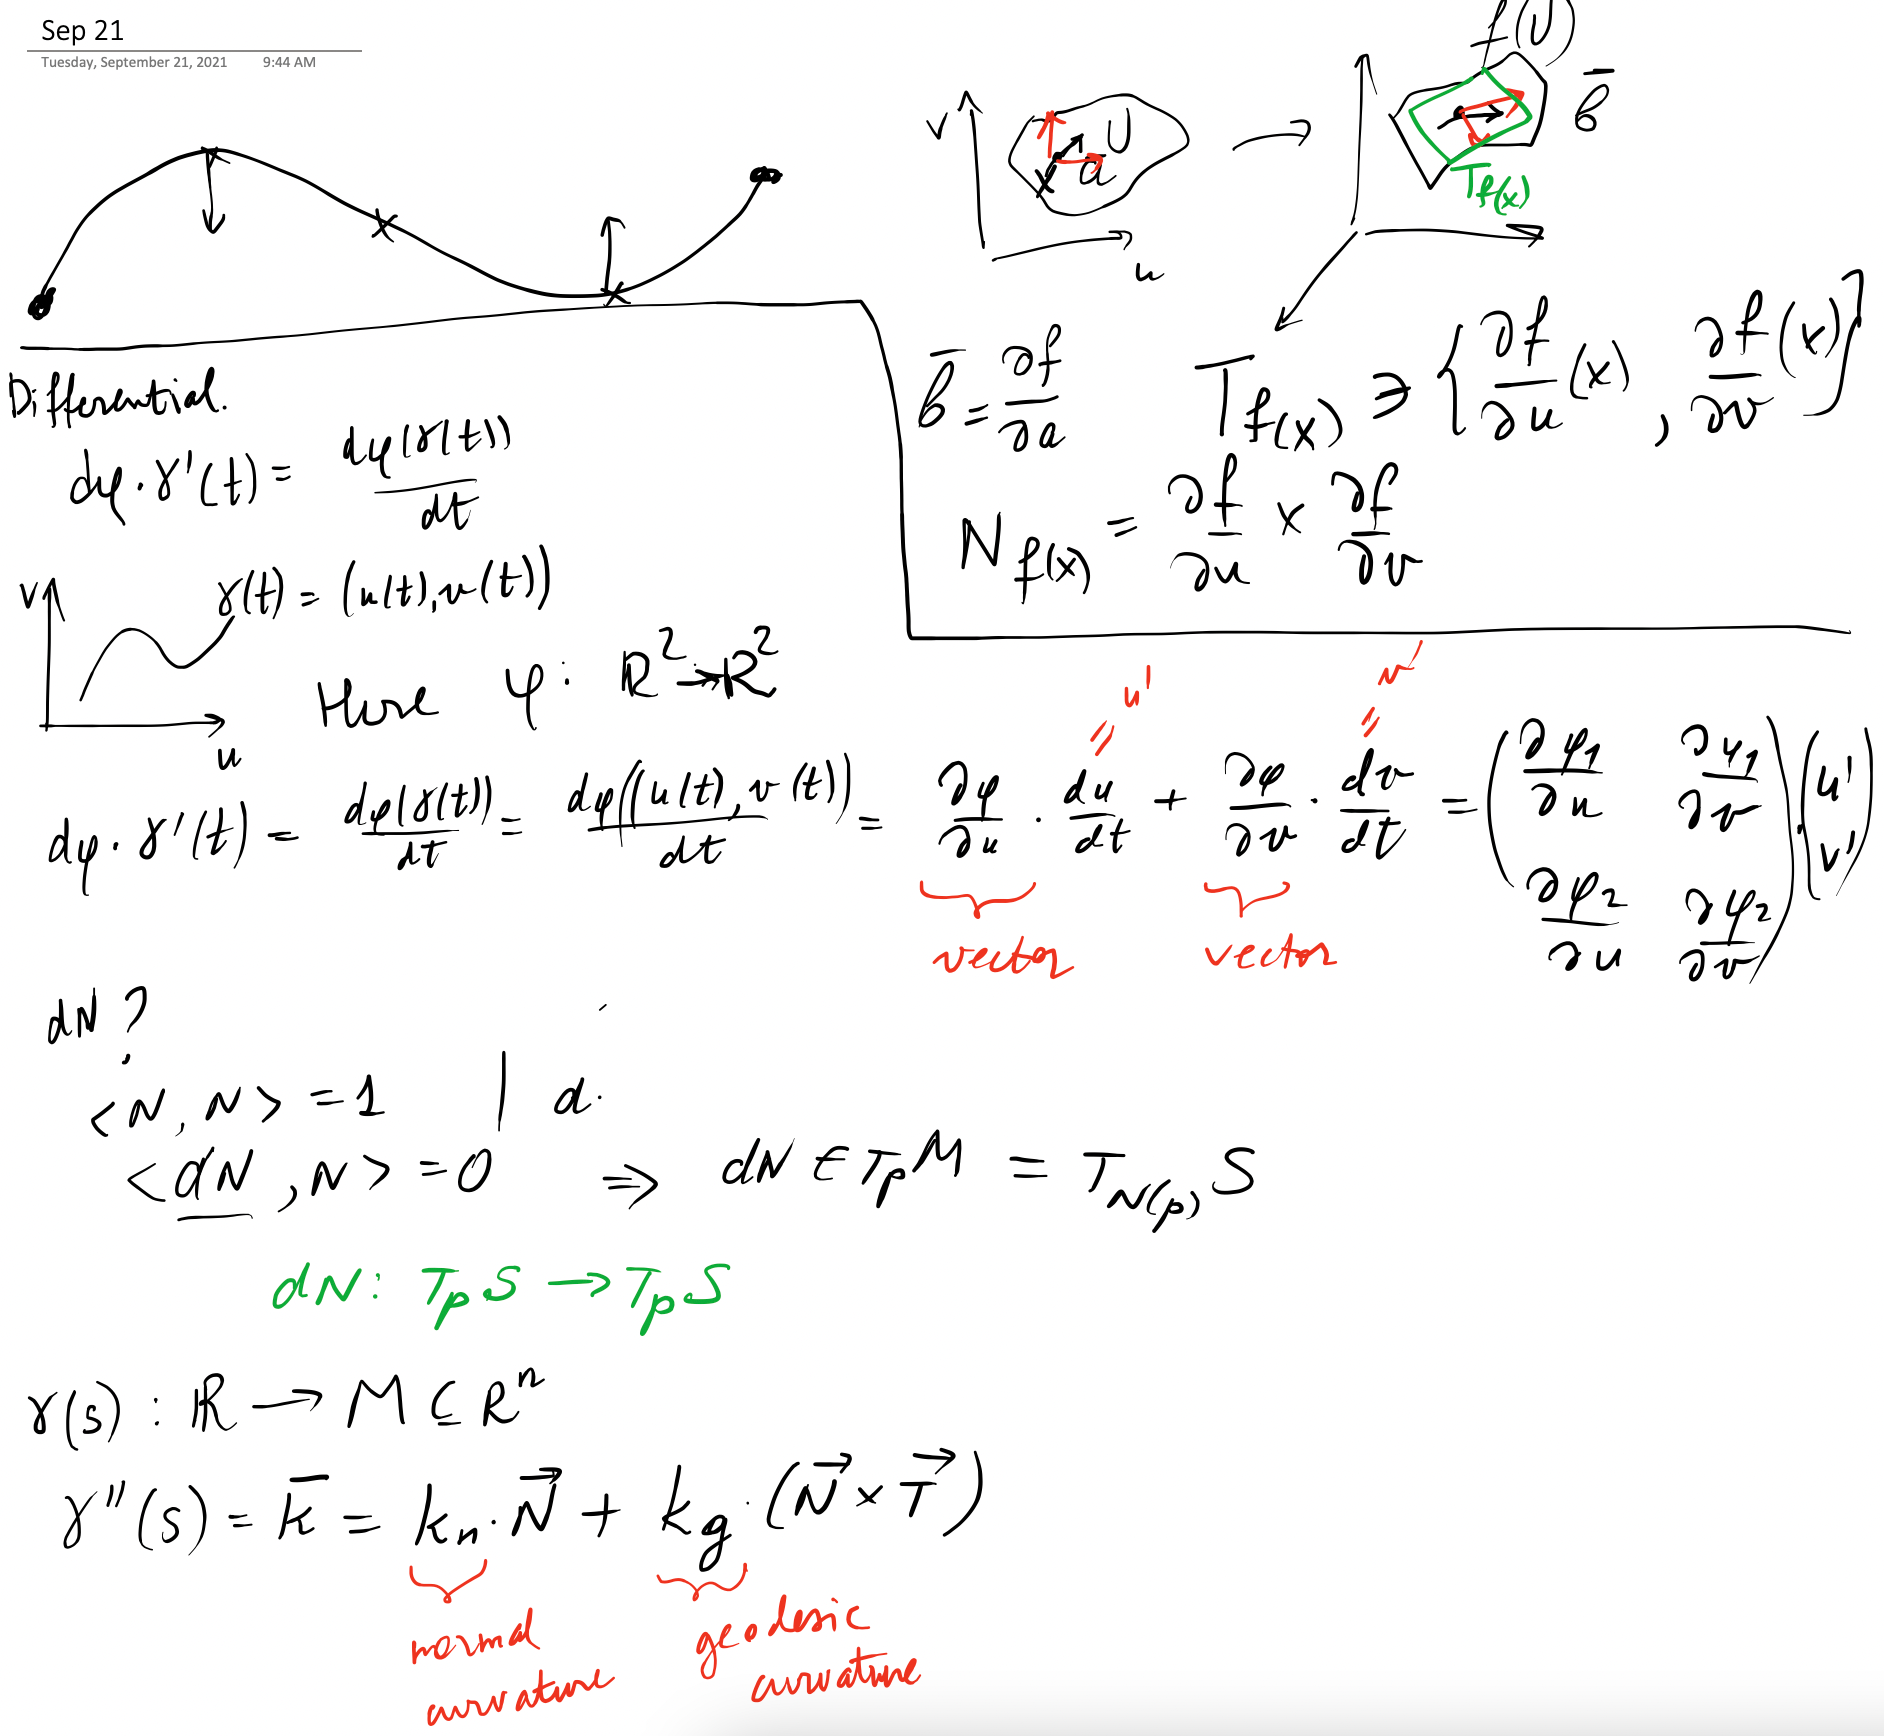 Sep 21
Tuesday, September 21, 2021 9:44 AM
f(U)
v U a x u
b̄
T_f(x)
b̄ = ∂f/∂a
T_f(x) ∋ {∂f/∂u (x), ∂f/∂v (x)}
N_f(x) = ∂f/∂u × ∂f/∂v
Differential.
dφ · γ'(t) = dφ(γ(t))/dt
v γ(t) = (u(t), v(t))
u
Here φ: R² → R²
u' v'
= =
dφ · γ'(t) = dφ(γ(t))/dt = dφ((u(t), v(t))/dt = ∂φ/∂u · du/dt + ∂φ/∂v · dv/dt = (∂φ₁/∂u ∂φ₁/∂v ∂φ₂/∂u ∂φ₂/∂v) · (u' v')
vector vector
dN ?
<N, N> = 1 | d.
<dN, N> = 0 ⇒ dN ∈ T_pM = T_N(p) S
dN: T_pS → T_pS
γ(s) : ℝ → M ⊆ Rⁿ
γ''(s) = k̄ = kₙ · N⃗ + k_g · (N⃗ × T⃗)
normal curvature
geodesic curvature